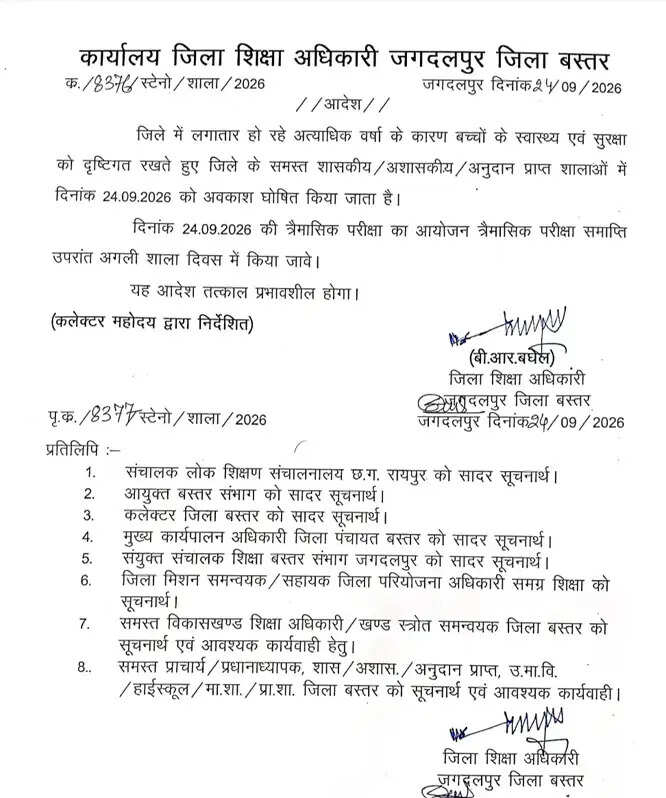 कार्यालय जिला शिक्षा अधिकारी जगदलपुर जिला बस्तर
क./8376/स्टेनो/शाला/2026 जगदलपुर दिनांक 24/09/2026
//आदेश//
जिले में लगातार हो रहे अत्याधिक वर्षा के कारण बच्चों के स्वास्थ्य एवं सुरक्षा
को दृष्टिगत रखते हुए जिले के समस्त शासकीय/अशासकीय/अनुदान प्राप्त शालाओं में
दिनांक 24.09.2026 को अवकाश घोषित किया जाता है।
दिनांक 24.09.2026 की त्रैमासिक परीक्षा का आयोजन त्रैमासिक परीक्षा समाप्ति
उपरांत अगली शाला दिवस में किया जावे।
यह आदेश तत्काल प्रभावशील होगा।
(कलेक्टर महोदय द्वारा निर्देशित)
(बी.आर.बघेल)
जिला शिक्षा अधिकारी
जगदलपुर जिला बस्तर
पृ.क./8377/स्टेनो/शाला/2026 जगदलपुर दिनांक 24/09/2026
प्रतिलिपि :–
1. संचालक लोक शिक्षण संचालनालय छ.ग. रायपुर को सादर सूचनार्थ।
2. आयुक्त बस्तर संभाग को सादर सूचनार्थ।
3. कलेक्टर जिला बस्तर को सादर सूचनार्थ।
4. मुख्य कार्यपालन अधिकारी जिला पंचायत बस्तर को सादर सूचनार्थ।
5. संयुक्त संचालक शिक्षा बस्तर संभाग जगदलपुर को सादर सूचनार्थ।
6. जिला मिशन समन्वयक/सहायक जिला परियोजना अधिकारी समग्र शिक्षा को
सूचनार्थ।
7. समस्त विकासखण्ड शिक्षा अधिकारी/खण्ड स्त्रोत समन्वयक जिला बस्तर को
सूचनार्थ एवं आवश्यक कार्यवाही हेतु।
8.. समस्त प्राचार्य/प्रधानाध्यापक, शास/अशास./अनुदान प्राप्त, उ.मा.वि.
/हाईस्कूल/मा.शा./प्रा.शा. जिला बस्तर को सूचनार्थ एवं आवश्यक कार्यवाही।
जिला शिक्षा अधिकारी
जगदलपुर जिला बस्तर